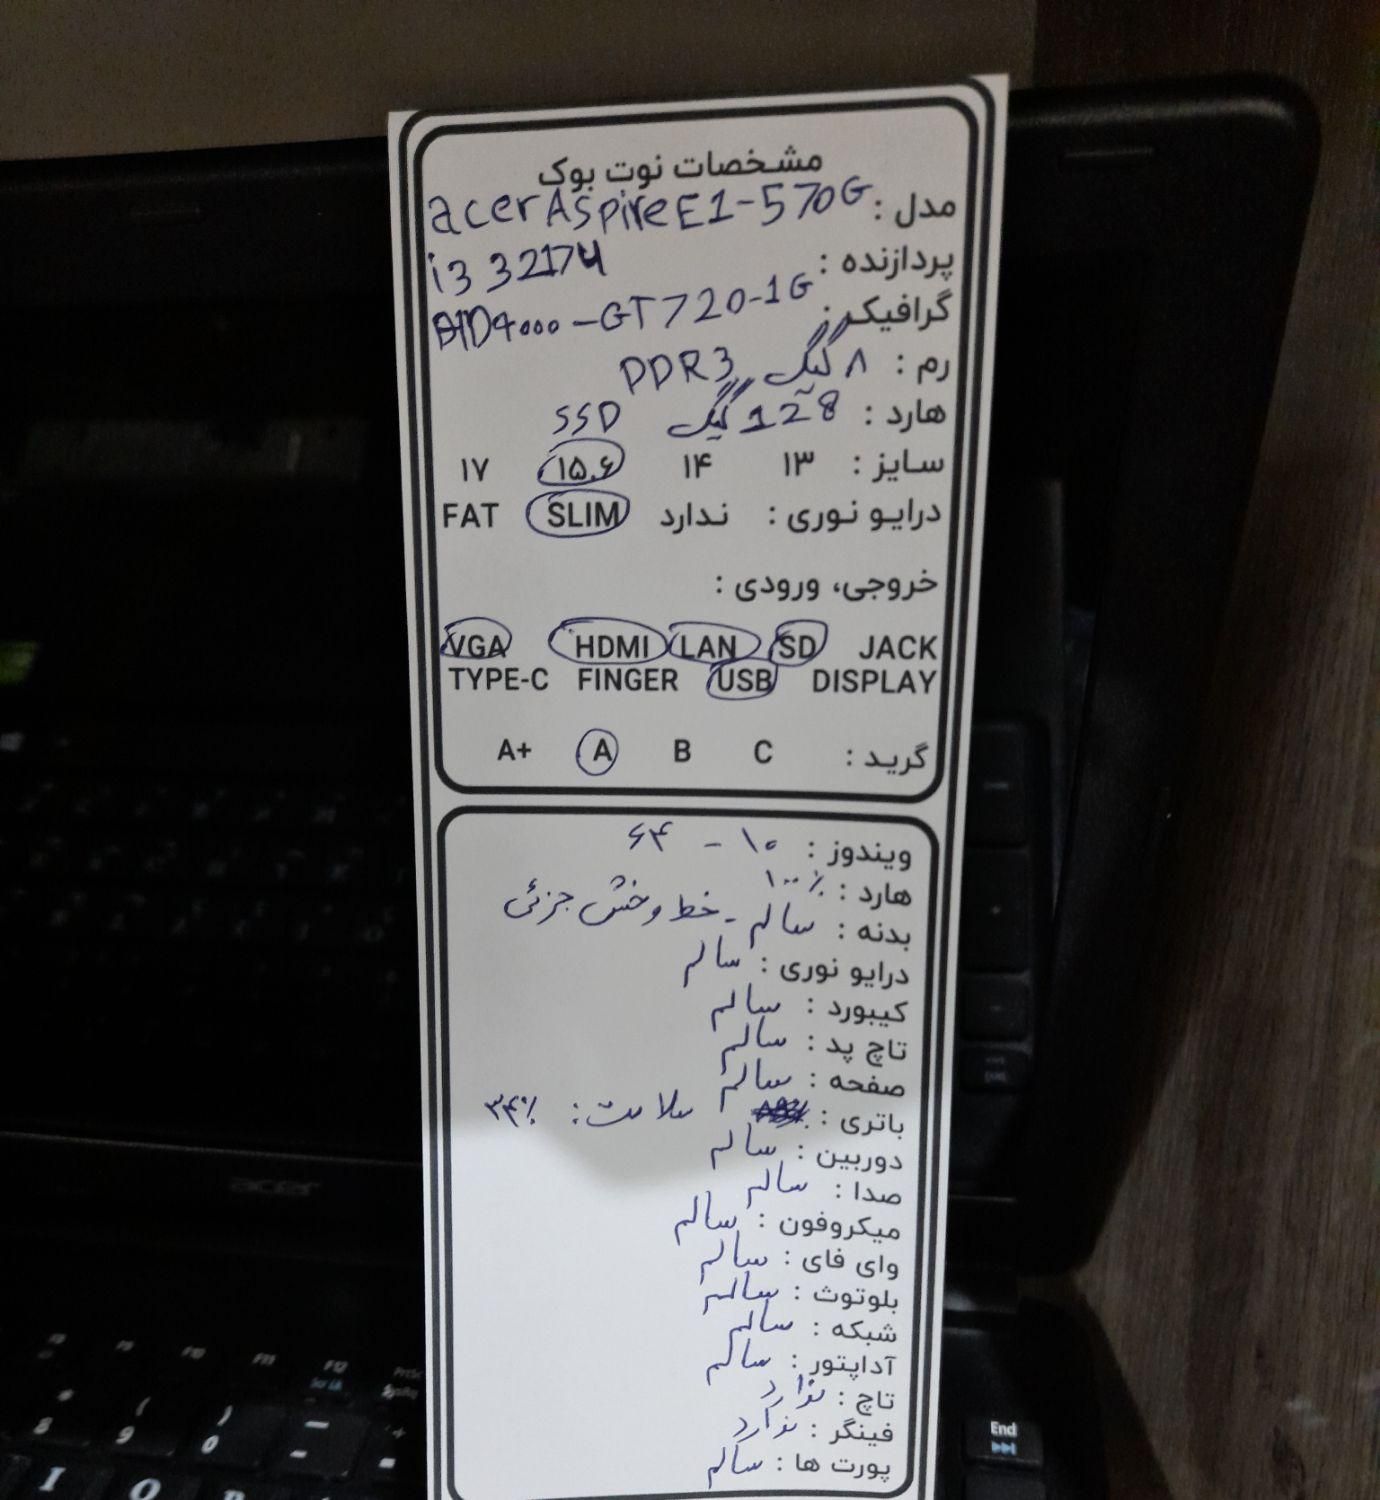 مشخصات نوت بوک
مدل : acer Aspire E1-570G
پردازنده : i3 3217U
گرافیک : HD4000-GT720-1G
رم : ۸ گیگ DDR3
هارد : 128 گیگ SSD
سایز : ۱۳ ۱۴ ۱۵.۶ ۱۷
درایو نوری : ندارد SLIM FAT
خروجی، ورودی :
VGA HDMI LAN SD JACK
TYPE-C FINGER USB DISPLAY
گرید : A+ A B C
ویندوز : ۱۰ - ۶۴
هارد : ۱۰۰٪
بدنه : سالم - خط و خش جزئی
درایو نوری : سالم
کیبورد : سالم
تاچ پد : سالم
صفحه : سالم
باتری : سلامت : ۳۴٪
دوربین : سالم
صدا : سالم
میکروفون : سالم
وای فای : سالم
بلوتوث : سالم
شبکه : سالم
آداپتور : سالم
تاچ : ندارد
فینگر : ندارد
پورت ها : سالم
acer
F9 F10 F11 F12 PrtSc
SysRq
* ( )
8 9 0 -
I O
End